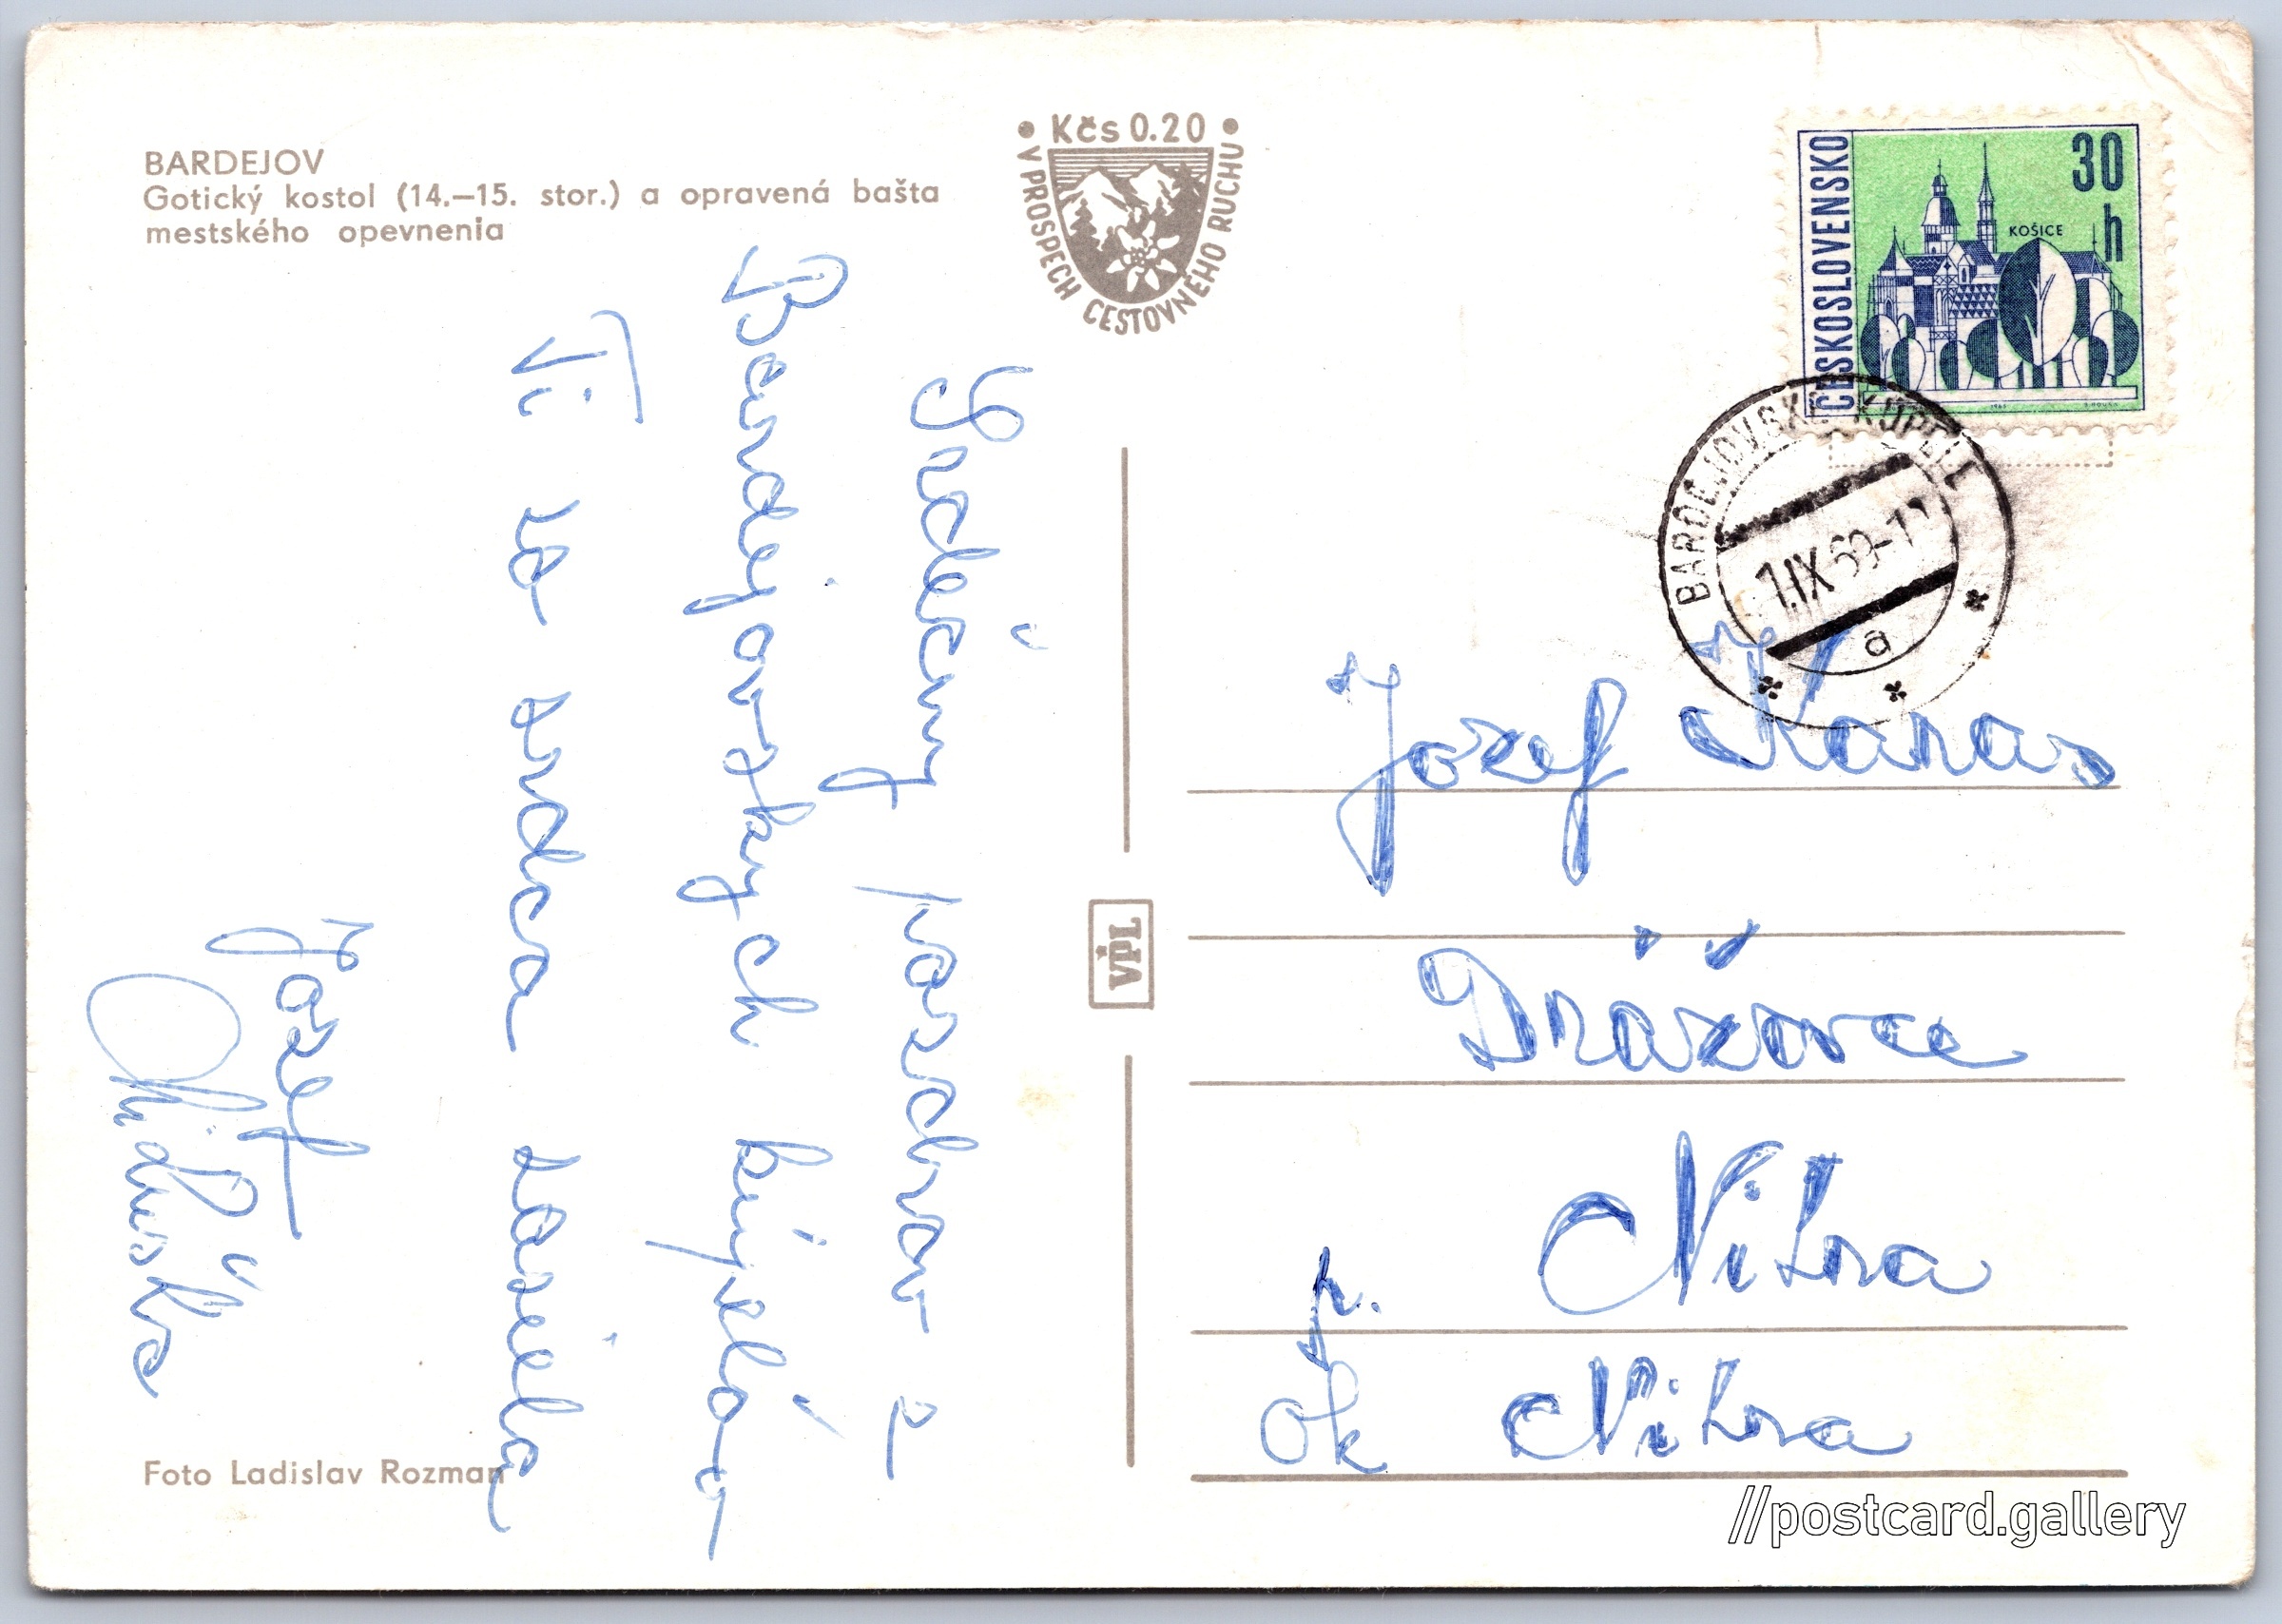 BARDEJOV
Gotický kostol (14.—15. stor.) a opravená bašta
mestského opevnenia
• Kčs 0.20 •
V PROSPECH CESTOVNÉHO RUCHU
ČESKOSLOVENSKO
30
h
KOŠICE
BARDEJOVSKÉ KÚPELE
1.IX 69-1
a
Srdečný pozdrav z
Bardejovských kúpelov
Ti zo srdca zasiela
Jozef
VPL
Jozef Karas
Dražovce
Nitra
p.
ok Nitra
Foto Ladislav Rozman
//postcard.gallery